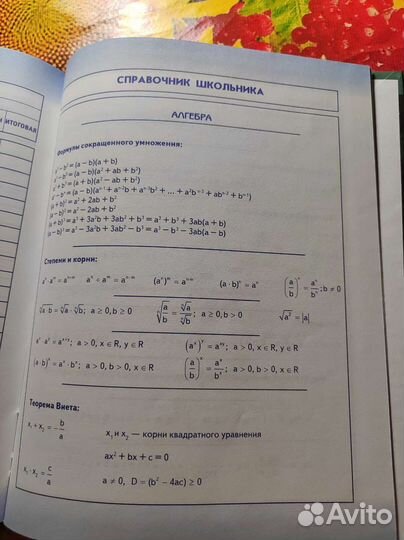 ИТОГОВАЯ
СПРАВОЧНИК ШКОЛЬНИКА
АЛГЕБРА
Формулы сокращенного умножения:
a² – b² = (a – b)(a + b)
a³ – b³ = (a – b)(a² + ab + b²)
a³ + b³ = (a + b)(a² – ab + b²)
aⁿ – bⁿ = (a – b)(aⁿ⁻¹ + aⁿ⁻²b + aⁿ⁻³b² + ... + a²bⁿ⁻³ + abⁿ⁻² + bⁿ⁻¹)
(a + b)² = a² + 2ab + b²
(a – b)² = a² – 2ab + b²
(a + b)³ = a³ + 3a²b + 3ab² + b³ = a³ + b³ + 3ab(a + b)
(a – b)³ = a³ – 3a²b + 3ab² – b³ = a³ – b³ – 3ab(a – b)
Степени и корни:
aⁿ · aᵐ = aⁿ⁺ᵐ aⁿ ÷ aᵐ = aⁿ⁻ᵐ (aⁿ)ᵐ = aⁿᵐ (a · b)ⁿ = aⁿ (a/b)ⁿ = aⁿ/bⁿ; b ≠ 0
ⁿ√a·b = ⁿ√a · ⁿ√b; a ≥ 0, b ≥ 0 ⁿ√a/b = ⁿ√a/ⁿ√b; a ≥ 0, b > 0 √a² = |a|
aˣ · aʸ = aˣ⁺ʸ; a > 0, x ∈ R, y ∈ R (aˣ)ʸ = aˣʸ; a > 0, x ∈ R, y ∈ R
(a · b)ˣ = aˣ · bˣ; a > 0, b > 0, x ∈ R (a/b)ˣ = aˣ/bˣ; a > 0, b > 0, x ∈ R
Теорема Виета:
x₁ + x₂ = – b/a x₁ и x₂ — корни квадратного уравнения
ax² + bx + c = 0
x₁ · x₂ = c/a a ≠ 0, D = (b² – 4ac) ≥ 0
Avito